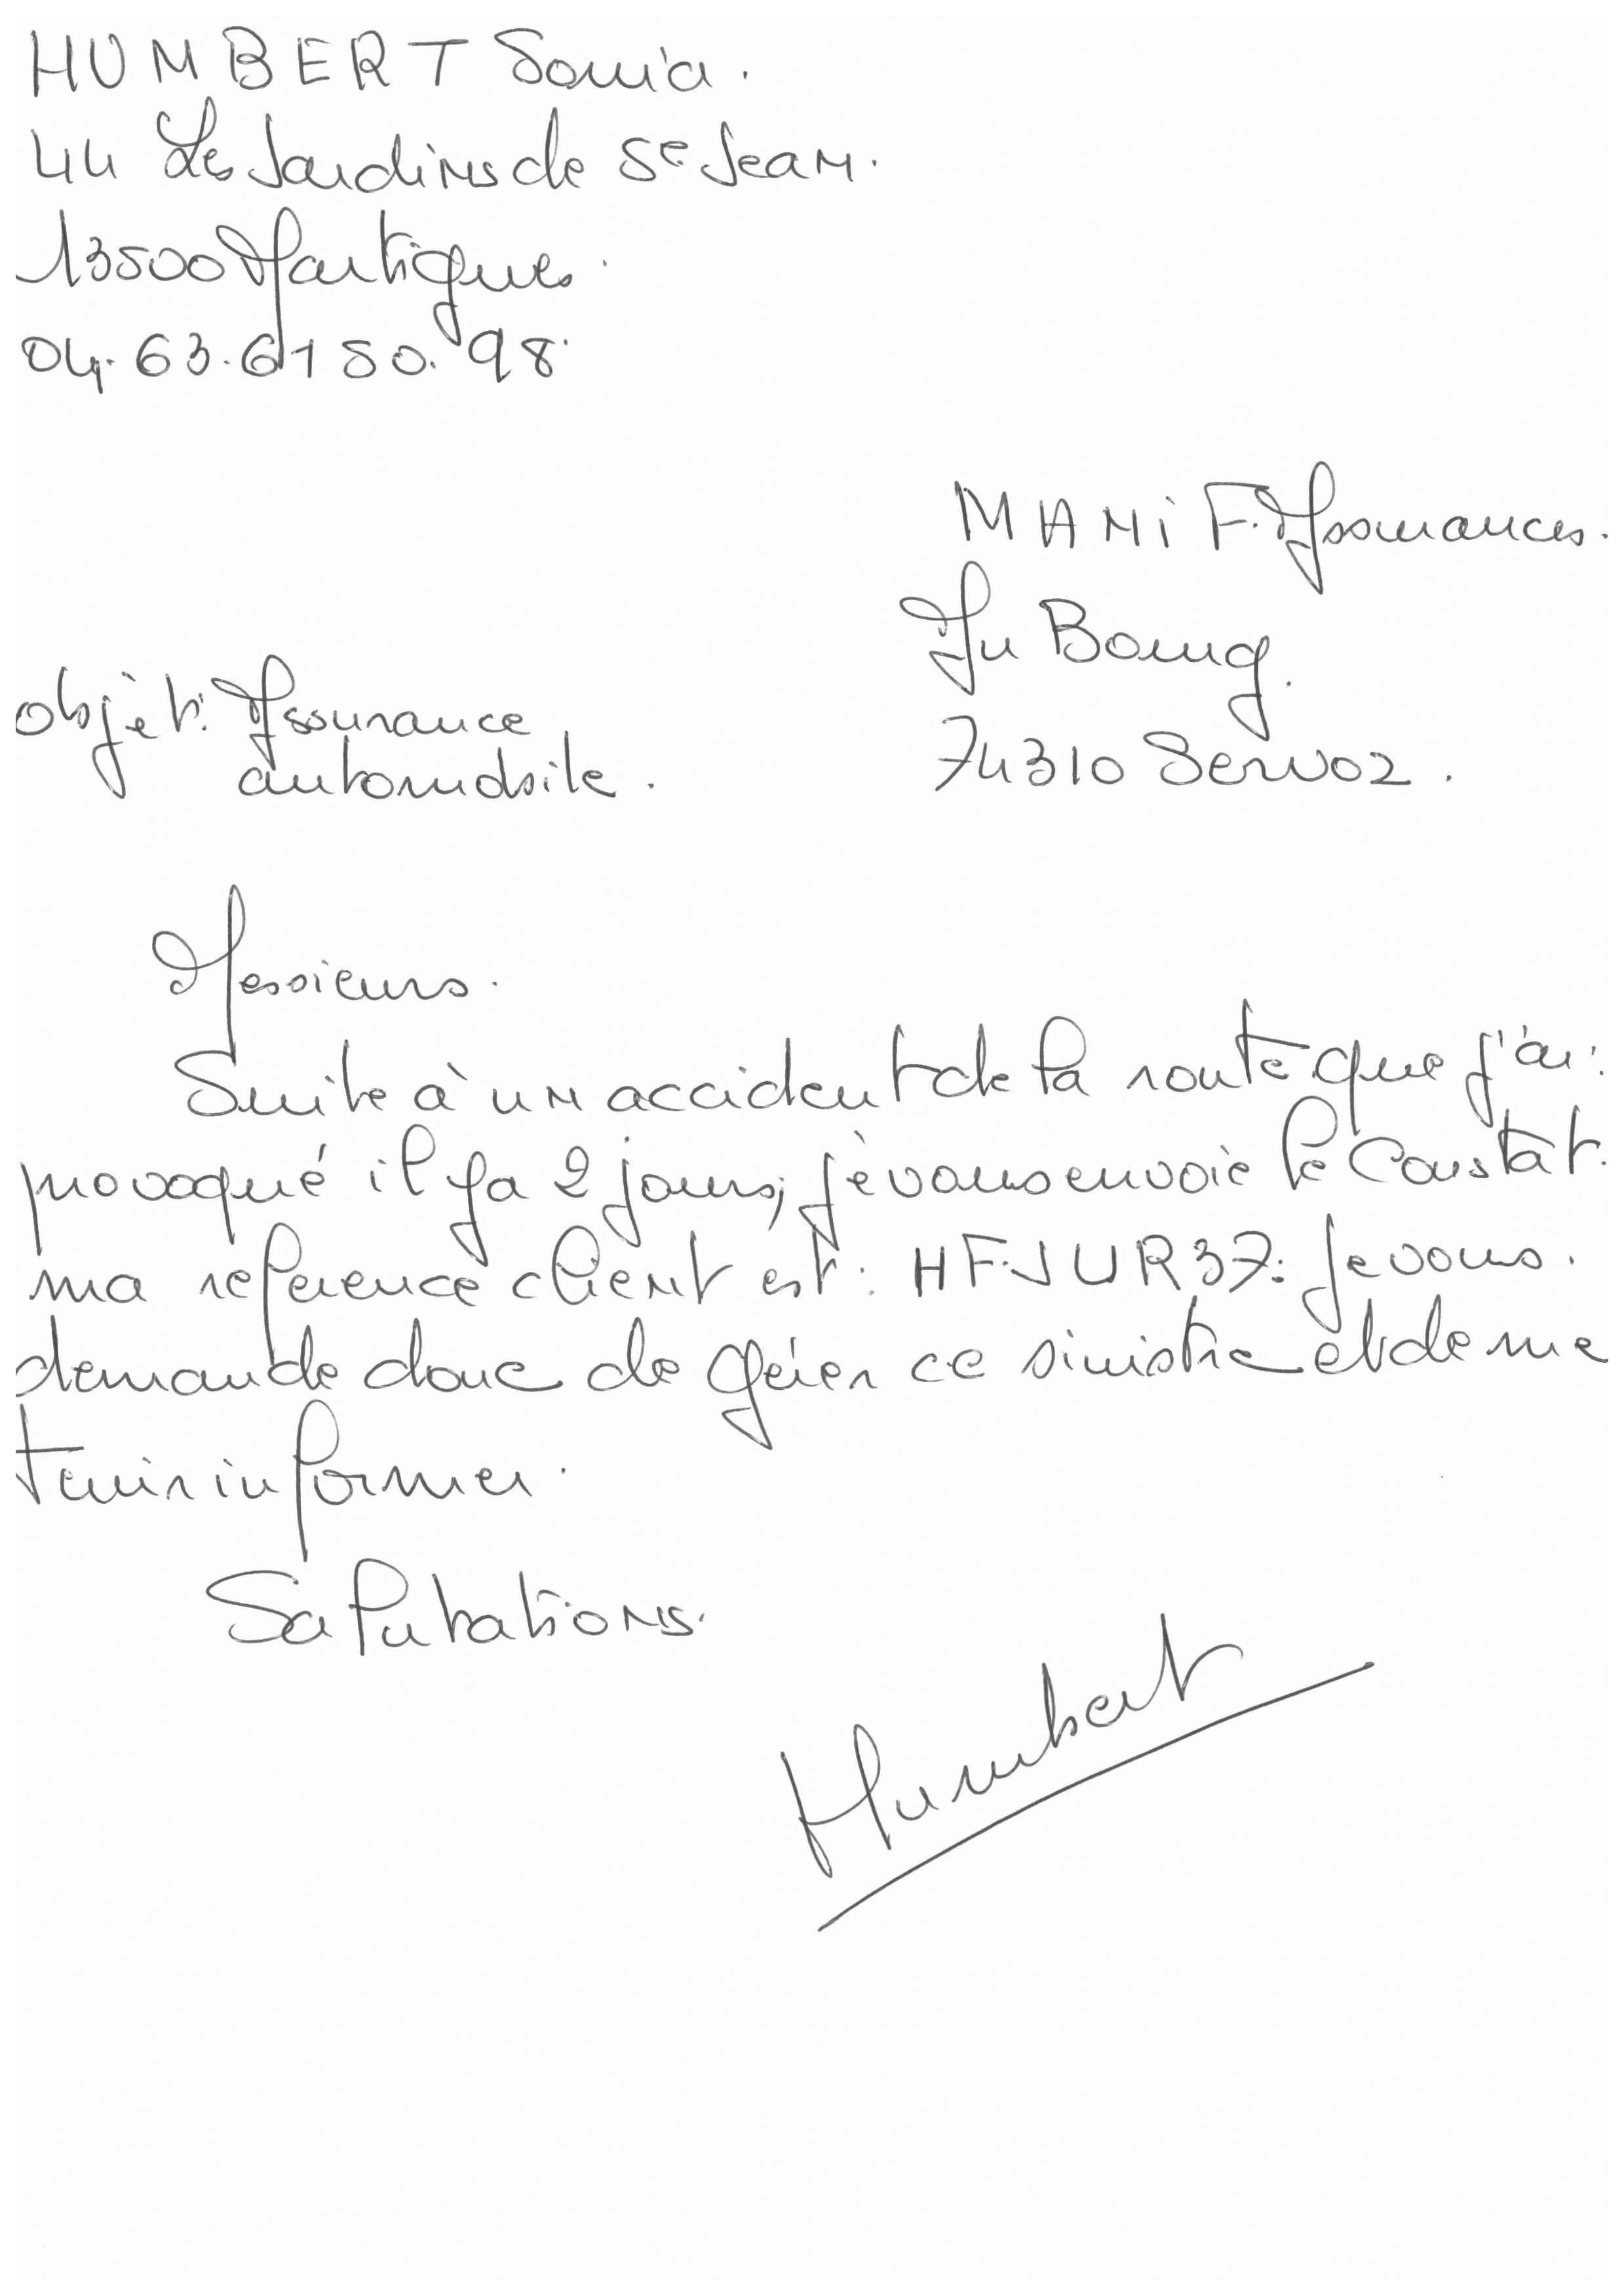 HUMBERT Sonia.
44 Les Jardins de St Jean.
13500 Martigues.
04.63.61 50.98.
MANiF. Assurances.
Au Bourg.
74310 Servoz.
objet: Assurance
automobile.
Messieurs.
Suite à un accident de la route que j'ai
provoqué il y a 2 jours, je vous envoie le constat.
ma réference client est: HFJUR37. Je vous.
demande donc de gérer ce sinistre et de me
tenir informer.
Salutations.
Humbert